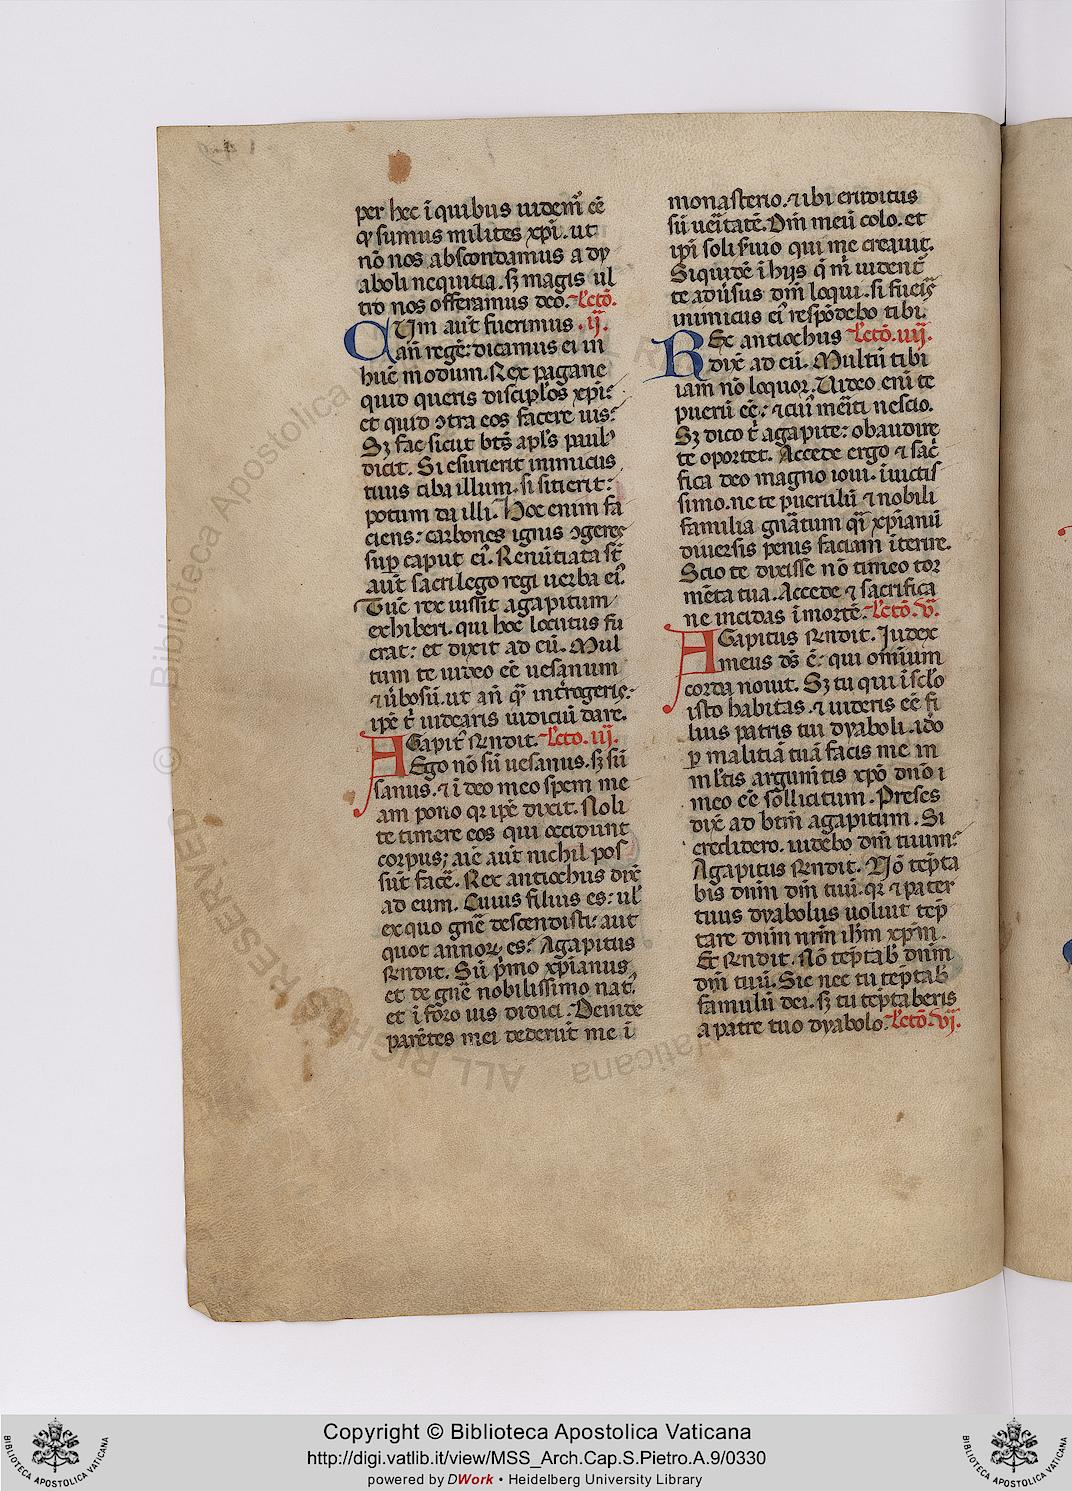 per hec ī quibus uidem᷑ eē
ꝙ sumus milites xp̄i. ut
nō nos abscondamus a dy
aboli nequitia. sꝫ magis ul
tro nos offeramus deo. Lectō.
CUm aut̄ fuerimus .ij.
an̄ regē: dicamus ei in
hūc modum. Rex pagane
quid queris discipl̄os xp̄i:
et quid ↄtra eos facere uis:
Sꝫ fac sicut bt̄s apl̄s paul᷒
dicit. Si esurierit inimicus
tuus ciba illum. si sitierit:
potum da illi. Hoc enim fa
ciens: carbones ignis ↄgeres
suꝑ caput ei᷒. Renūtiata st̄
aut̄ sacrilego regi uerba ei᷒.
Tūc rex iussit agapitum
exhiberi. qui hoc locutus fu
erat: et dixit ad eū. Mul
tum te uideo eē uesanum
⁊ ūbosū. ut an̄ qͣ int̄rogeris:
ip̄e t᷑ uidearis iudiciū dare.
AGapit᷒ r̄ndit. Lectō. iij.
Ego nō sū uesanus. sꝫ sū
sanus. ⁊ ī deo meo spem me
am pono qꝛ ip̄e dixit. Noli
te timere eos qui occidunt
corpus; aīē aut̄ nichil pos
sūt facē. Rex antiochus dix̄
ad eum. Cuius filius es: ul̓
ex quo gn̄e descendisti: aut
quot annoꝝ es: Agapitus
r̄ndit. Sū p̄mo xp̄ianus
et de gn̄e nobilissimo nat᷒.
et ī foro uis didici. Deinde
parētes mei dederūt me ī
monasterio. ⁊ ibi eruditus
sū ueritatē. Dn̄m meū colo. et
ip̄i soli s̓uio qui me creauit.
Siquidē ī hijs q̄ m̓ uident᷑
te adūsus dn̄m loqui. si fueīs
inimicus ei᷒ respōdebo tibi.
REx antiochus Lectō. iiij.
dix̄ ad eū. Multū tibi
iam nō loquor. Uideo enī te
puerū eē: ⁊ cui᷒ mēīti nescio.
Sꝫ dico t᷑ agapite: obaudire
te oportet. Accede ergo ⁊ sac̓
fica deo magno ioui. īuictis
simo. ne te puerulū ⁊ nobili
familia gn̄atum qͣi xp̄ianū
diuersis penis faciam īterire.
Scio te dixisse nō timeo tor
mēta tua. Accede ⁊ sacrifica
ne incidas ī mortē. Lectō. v̄.
AGapitus r̄ndit. Iudex
meus ds̄ ē: qui omīum
corda nouit. Sꝫ tu qui ī scl̓o
isto habitas. ⁊ uideris eē fi
lius patris tui dyaboli. iđo
ꝑ malitiā tuā facis me in
ml̓tis argum̄tis xp̄o dn̄o
meo eē sollicitum. Preses
dix̄ ad btm̄ agapitum. Si
credidero. uidebo dn̄m tuum:
Agapitus r̄ndit. Nō tēpta
bis dn̄m dm̄ tuū. qꝛ ⁊ pater
tuus dyabolus uoluit tēp
tare dn̄m nr̄m ih̄m xp̄m.
Et r̄ndit. Nō tēptab̓ dn̄m
dm̄ tuū. Sic nec tu tēptab̓
famulū dei. sꝫ tu tēptaberis
a patre tuo dyabolo. Lectō. vj.
Copyright © Biblioteca Apostolica Vaticana
http://digi.vatlib.it/view/MSS_Arch.Cap.S.Pietro.A.9/0330
powered by DWork • Heidelberg University Library
© Biblioteca Apostolica Vaticana
ALL RIGHTS RESERVED
BIBLIOTECA APOSTOLICA VATICANA
BIBLIOTECA APOSTOLICA VATICANA